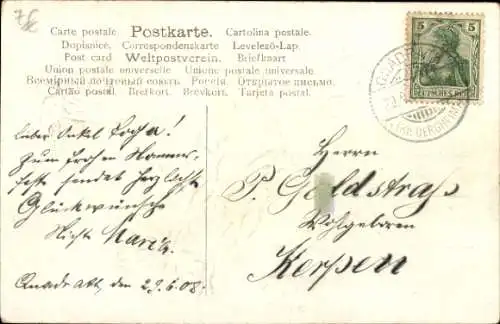 Carte postale Postkarte. Cartolina postale.
Dopisnice. Correspondenzkarte Levelező-Lap.
Post card Weltpostverein. Briefkaart
Union postale universelle Unione postale universale
Всемірный почтовый союзъ Россія Открытое письмо.
Cartão postal. Brefkort. Brevkort. Tarjeta postal.
5 5
DEUTSCHES REICH
(KR. BERGHEIM)
Lieber Onkel
Zum frohen Namens-
feste sendet herzlichste
Glückwünsche
Nichte Maria
Quadrath, den 29.6.08.
Herrn
P. Goldstraß
Wohlgeboren
Kerpen